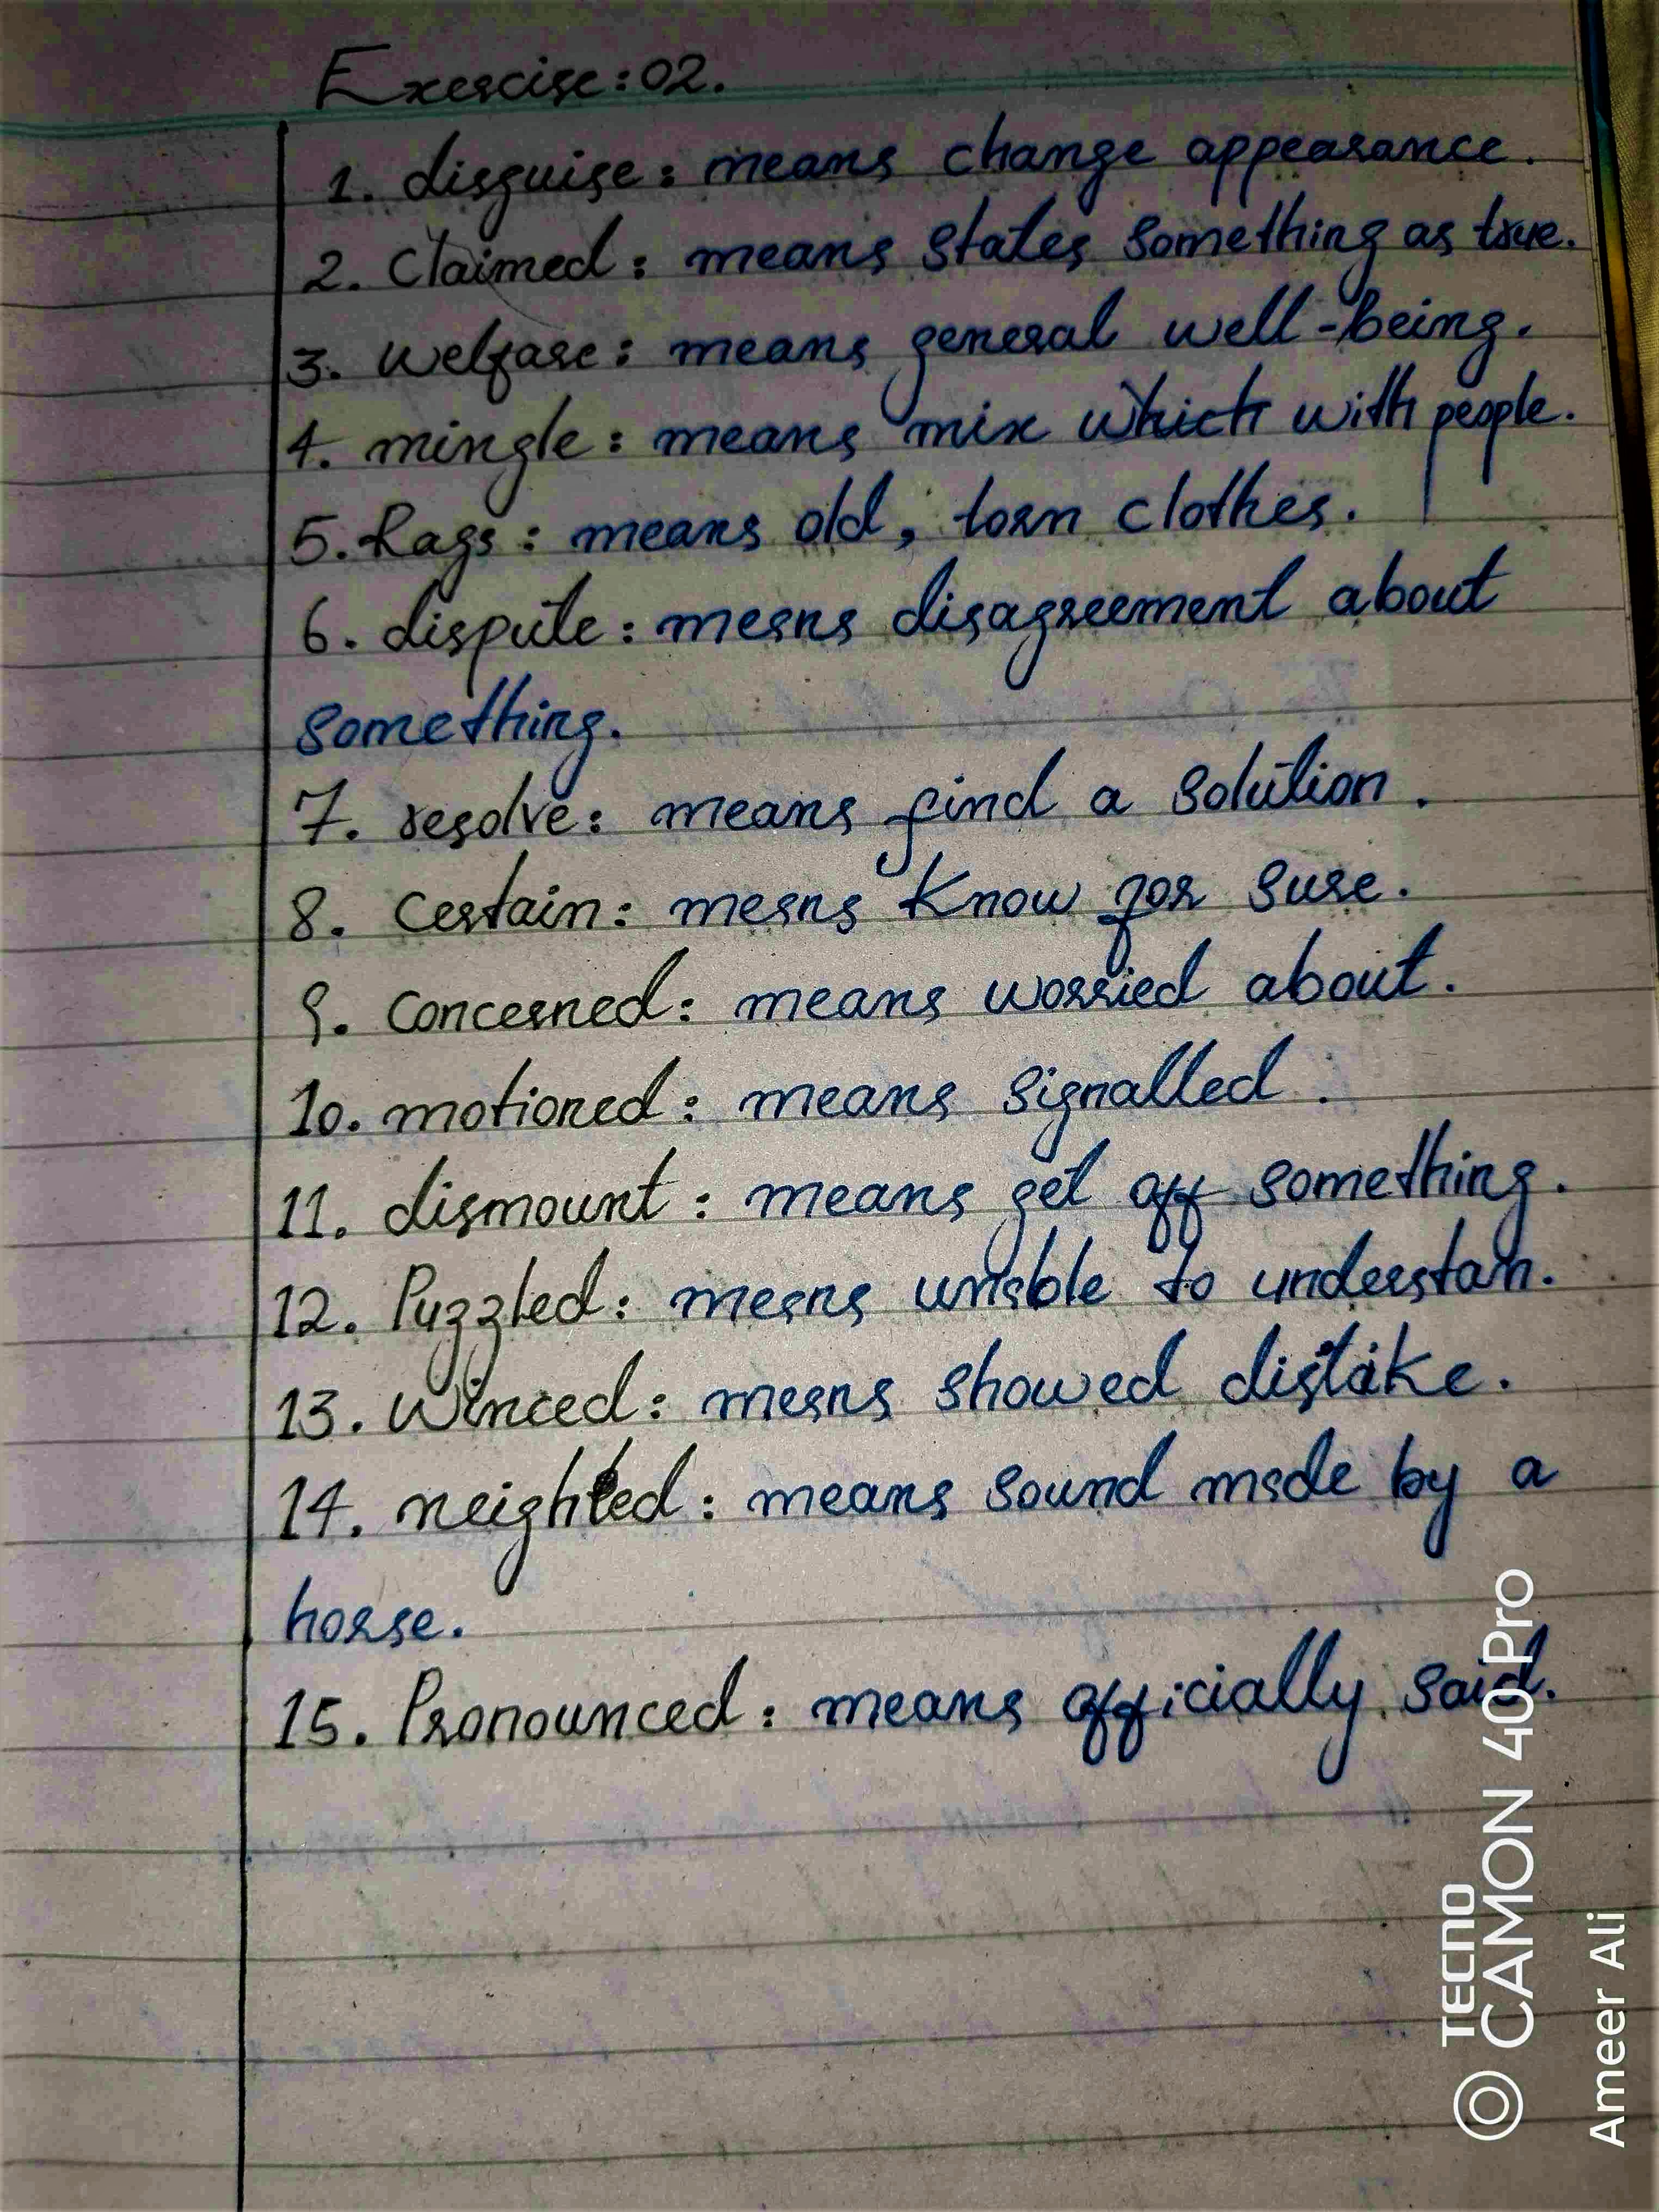 Exercise: 02.
1. disguise: means change appearance.
2. Claimed: means states something as true.
3. welfare: means general well-being.
4. mingle: means mix which with people.
5. Rags: means old, torn clothes.
6. dispute: means disagreement about
something.
7. resolve: means find a solution.
8. Certain: means Know for sure.
9. Concerned: means worried about.
10. motioned: means signalled.
11. dismount: means get off something.
12. Puzzled: means unable to understan.
13. Winced: means showed distake.
14. neighted: means sound made by a
horse.
15. Pronounced: means officially said.
TECNO
CAMON 40 Pro
Ameer Ali